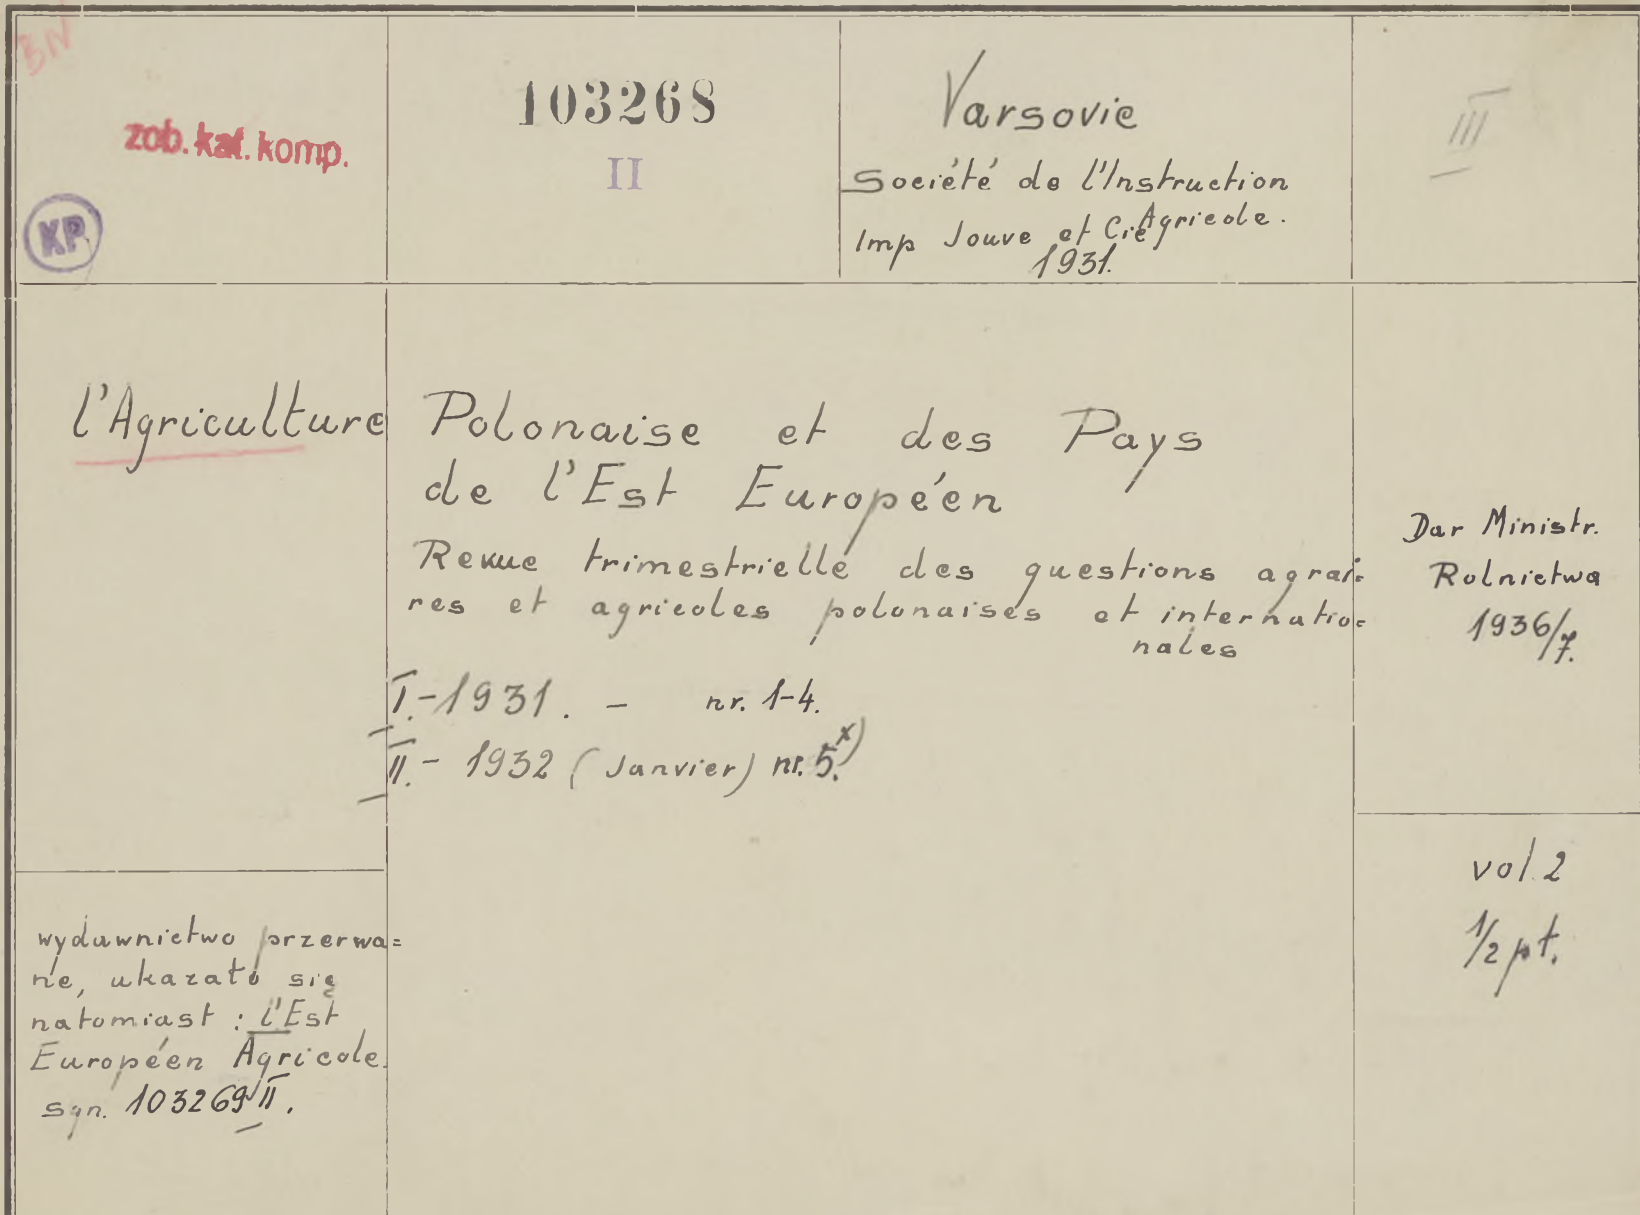 BN
zob. kat. komp.
KP
103268
II
Varsovie
Société de l'Instruction
Agricole.
Imp Jouve et Cie
1931.
III
l'Agriculture Polonaise et des Pays
de l'Est Européen
Revue trimestrielle des questions agrai=
res et agricoles polonaises et internatio=
nales
I.-1931. - nr. 1-4.
II.- 1932 (Janvier) nr. 5.x)
Dar Ministr.
Rolnictwa
1936/7.
vol. 2
1/2 pł.
wydawnictwo przerwa=
ne, ukazało się
natomiast : l'Est
Européen Agricole.
sgn. 103269 II.